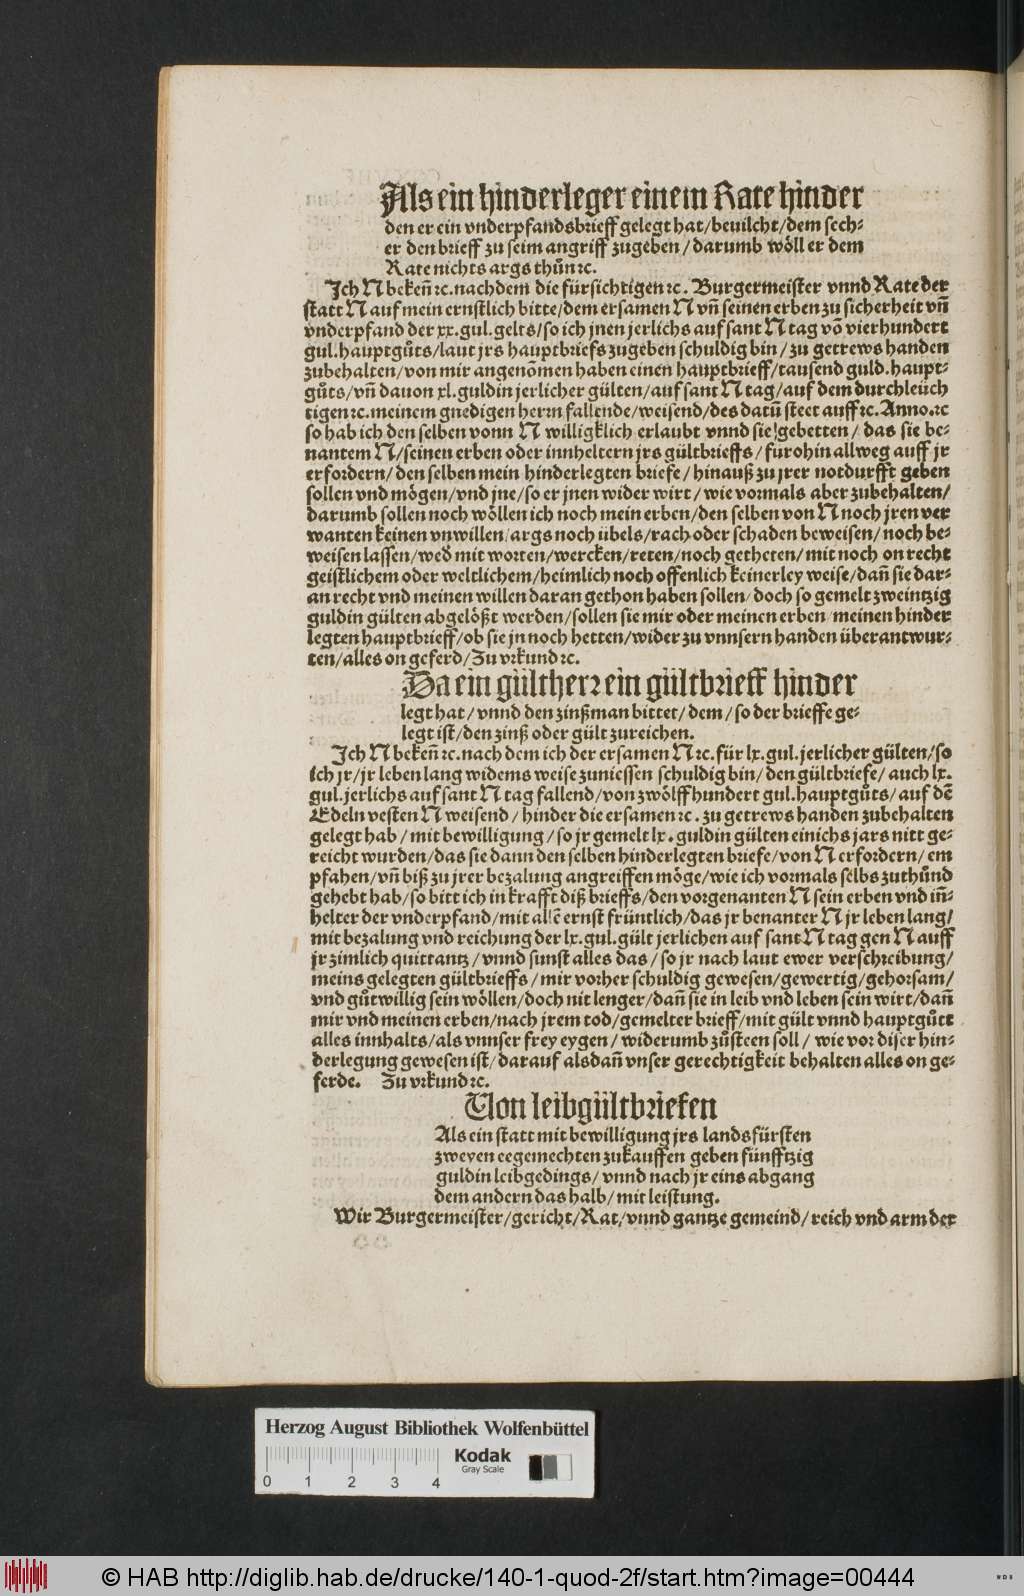 Als ein hinderleger einem Rate hinder
den er ein vnderpfandsbrieff gelegt hat/beuilcht/dem sech-
er den brieff zu seim angriff zugeben/darumb wöll er dem
Rate nichts args thůn ꝛc.
Jch N bekeñ ꝛc. nachdem die fürsichtigen ꝛc. Burgermeister vnnd Rate der
statt N auf mein ernstlich bitte/dem ersamen N vñ seinen erben zu sicherheit vñ
vnderpfand der xx. gul. gelts/so ich jnen jerlichs auf sant N tag võ vierhundert
gul. hauptgůts/laut jrs hauptbriefs zugeben schuldig bin/zu getrews handen
zubehalten/von mir angenõmen haben einen hauptbrieff/tausend guld. haupt-
gůts/vñ dauon xl. guldin jerlicher gülten/auf sant N tag/auf dem durchleüch
tigen ꝛc. meinem gnedigen herrn fallende/weisend/des datũ steet auff ꝛc. Anno. ꝛc
so hab ich den selben vonn N williglich erlaubt vnnd sie gebetten/das sie be-
nantem N/seinen erben oder innheltern jrs gültbrieffs/fürohin allweg auff jr
erfordern/den selben mein hinderlegten briefe/hinauß zu jrer notdurfft geben
sollen vnd mögen/vnd jne/so er jnen wider wirt/wie vormals aber zubehalten/
darumb sollen noch wöllen ich noch mein erben/den selben von N noch jren ver
wanten keinen vnwillen/args noch übels/rach oder schaden beweisen/noch be-
weisen lassen/wed̃ mit worten/wercken/reten/noch getheten/mit noch on recht
geistlichem oder weltlichem/heimlich noch offenlich keinerley weise/dañ sie dar-
an recht vnd meinen willen daran gethon haben sollen/doch so gemelt zweintzig
guldin gülten abgelößt werden/sollen sie mir oder meinen erben meinen hinder
legten hauptbrieff/ob sie jn noch hetten/wider zu vnnsern handen überantwur-
ten/alles on geferd/Zu vrkund ꝛc.
Da ein gültherr ein gültbrieff hinder
legt hat/vnnd den zinßman bittet/dem/so der brieffe ge-
legt ist/den zinß oder gült zureichen.
Jch N bekeñ ꝛc. nach dem ich der ersamen N ꝛc. für lx. gul. jerlicher gülten/so
ich jr/jr leben lang widems weise zuniessen schuldig bin/den gültbriefe/auch lx.
gul. jerlichs auf sant N tag fallend/von zwölffhundert gul. hauptgůts/auf dẽ
Edeln vesten N weisend/hinder die ersamen ꝛc. zu getrews handen zubehalten
gelegt hab/mit bewilligung/so jr gemelt lx. guldin gülten einichs jars nitt ge-
reicht wurden/das sie dann den selben hinderlegten briefe/von N erfordern/em
pfahen/vñ biß zu jrer bezalung angreiffen möge/wie ich vormals selbs zuthůnd
gehebt hab/so bitt ich in krafft diß brieffs/den vorgenanten N sein erben vnd iñ-
helter der vnderpfand/mit allẽ ernst früntlich/das jr benanter N jr leben lang/
mit bezalung vnd reichung der lx. gul. gült jerlichen auf sant N tag gen N auff
jr zimlich quittantz/vnnd sunst alles das/so jr nach laut ewer verschreibung/
meins gelegten gültbrieffs/mir vorher schuldig gewesen/gewertig/gehorsam/
vnd gůtwillig sein wöllen/doch nit lenger/dañ sie in leib vnd leben sein wirt/dañ
mir vnd meinen erben/nach jrem tod/gemelter brieff/mit gült vnnd hauptgůtt
alles innhalts/als vnnser frey eygen/widerumb zůsteen soll/wie vor diser hin-
derlegung gewesen ist/darauf alsdañ vnser gerechtigkeit behalten alles on ge-
ferde. Zu vrkund ꝛc.
Von leibgültbriefen
Als ein statt mit bewilligung jrs landsfürsten
zweyen eegemechten zukauffen geben fünfftzig
guldin leibgedings/vnnd nach jr eins abgang
dem andern das halb/mit leistung.
Wir Burgermeister/gericht/Rat/vnnd gantze gemeind/reich vnd arm der
Herzog August Bibliothek Wolfenbüttel
Kodak
Gray Scale
0 1 2 3 4
© HAB http://diglib.hab.de/drucke/140-1-quod-2f/start.htm?image=00444